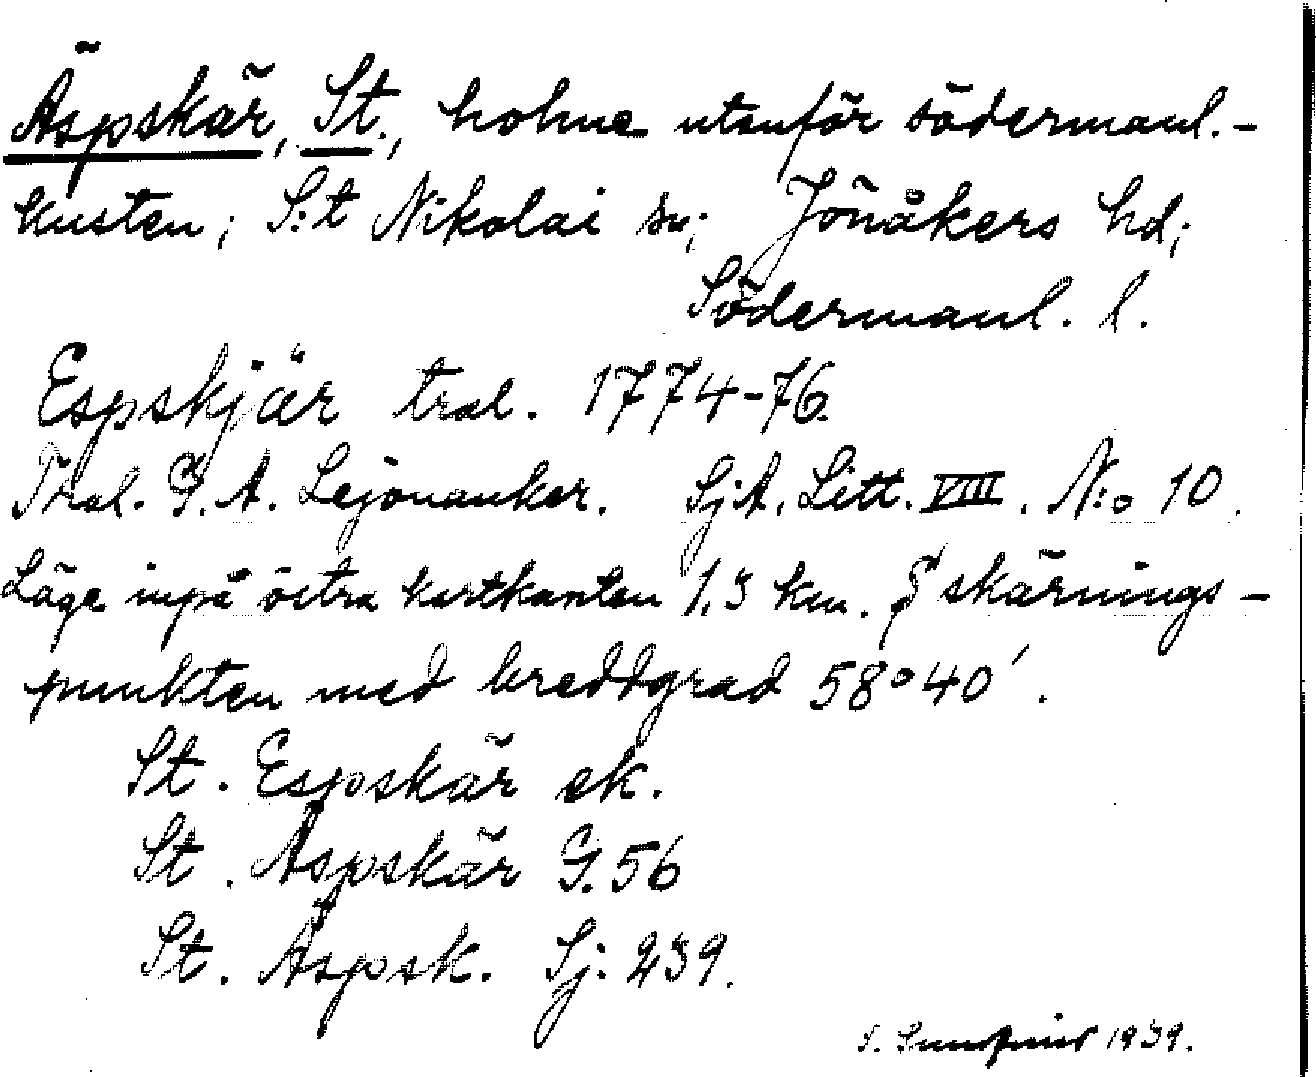 Äspskär, St., holme utanför södermanl.-
kusten; S:t Nikolai sn; Jönåkers hd;
Södermanl. l.
Espskjär tral. 1774-76.
Tral. G. A. Lejonanker. SjA. Litt. VIII. N:o 10.
Läge inpå östra kartkanten 1,3 km. S skärnings-
punkten med breddgrad 58°40′.
St. Espskär ek.
St. Äspskär G. 56
St. Äspsk. Sj: 239.
1939.